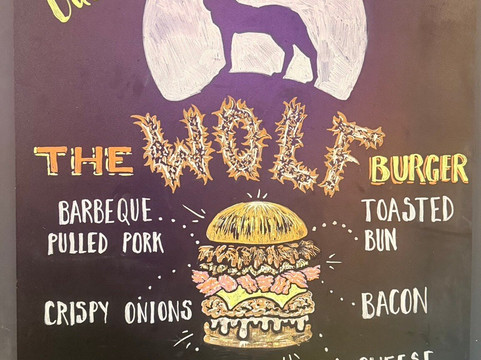 THE WOLF BURGER
BARBEQUE TOASTED
PULLED PORK BUN
CRISPY ONIONS BACON
CHEESE